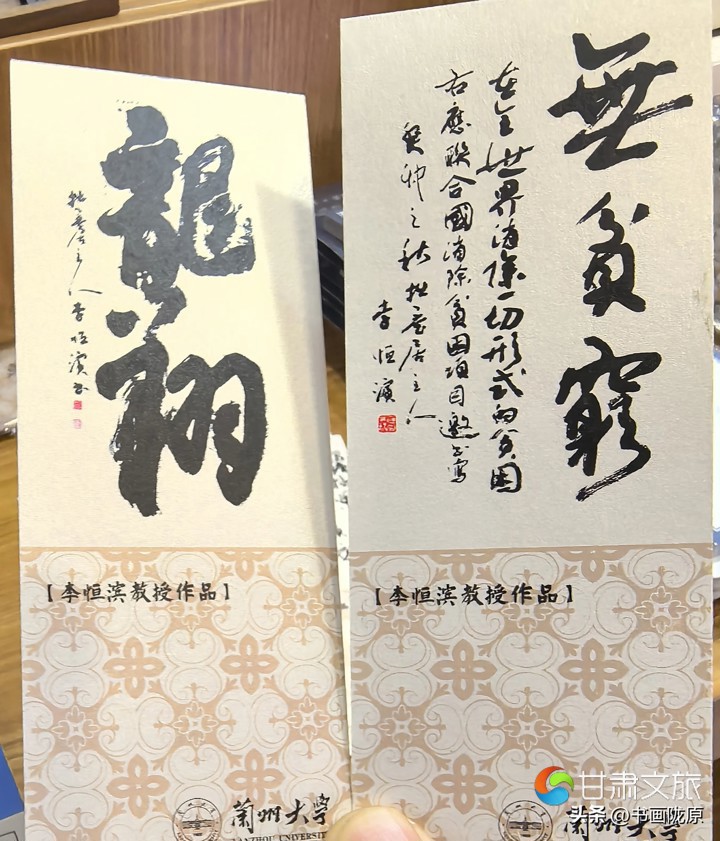 龍翔
拙居主人李恒濱書
【李恒滨教授作品】
蘭州大學
LANZHOU UNIVERSITY
無貧窮
在全世界消除一切形式的貧困
右應聯合國消除貧困項目邀書寫
癸卯之秋拙居主人
李恒濱
【李恒滨教授作品】
蘭州大學
甘肃文旅
头条@书画陇原